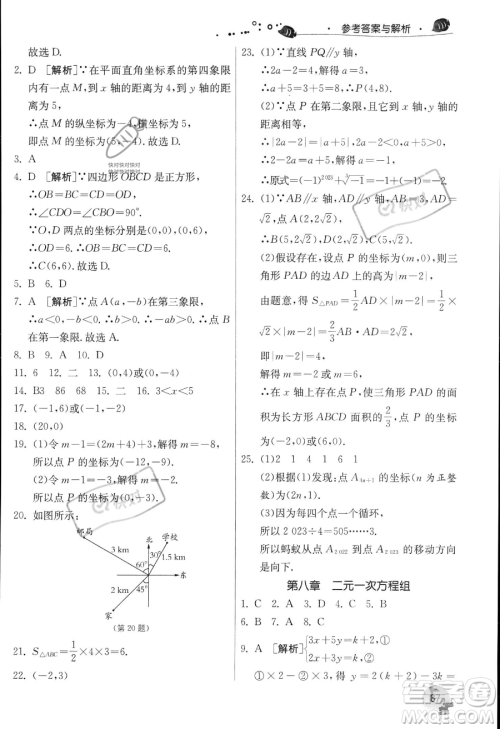 参考答案与解析
故选 D.
2. D [解析]∵在平面直角坐标系的第四象限
内有一点 M,到 x 轴的距离为 4,到 y 轴的
距离为 5,
∴点 M 的纵坐标为-4,横坐标为 5,
即点 M 的坐标为(5,-4).故选 D.
3. A
4. D [解析]∵四边形 OBCD 是正方形,
∴OB=BC=CD=OD,
∴∠CDO=∠CBO=90°.
∵O,D 两点的坐标分别是(0,0),(0,6),
∴OD=6. ∴OB=BC=CD=6.
∴C(6,6).故选 D.
5. B 6. B
7. A [解析]∵点 A(a,-b)在第三象限,
∴a<0,-b<0. ∴b>0. ∴点 B
在第一象限.故选 A.
8. B 9. A 10. D
11. 6 12. 二 13. (4,0)或(-4,0)
14. B3 86 68 15. 二 16. 3<x<5
17. (-1,6)或(-1,-4)
18. (20,0)
19. (1)令 m-1=(2m+4)+3,解得 m=-8.
所以点 P 的坐标为(-12,-9).
(2)令 m-1=-3,解得 m=-2.
所以点 P 的坐标为(0,-3).
20. 如图所示:
邮局 北 学校
3 km 1.5 km
60° 30°
2 km 45°
家
(第 20 题)
21. S△ABC=1/2×4×3=6.
22. (-2,3)
23. (1)∵直线 PQ∥y 轴,
∴2a-2=4. ∴a=3.
∴a+5=3+5=8. ∴P(4,8).
(2)∵点 P 在第二象限,且它到 x 轴、y 轴
的距离相等,
∴|2a-2|=|a+5|,2a-2<0,a+5>0.
∴2-2a=a+5. ∴a=-1.
∴原式=(-1)²⁰²³+∛-1=-1+(-1)=-2.
24. (1)∵AB∥x 轴,且 AB=4,AD=2√2,
√2,点 A(2,√2),
∴B(6,√2),D(2,-√2).
(2)假设存在,设点 P 的坐标为(m,0),
则三角形 PAD 的边 AD 上的高为|m-2|.
∴S△PAD=1/2AD×|m-2|=1/2×2√2×
|m-2|=2/3AB·AD=2/3×4×2√2,
即|m-2|=16/3.
解得 m=-10/3或 m=22/3.
∴在 x 轴上存在点 P,使三角形 PAD 的面
积为长方形 ABCD 面积的2/3,点 P 的坐标
为(-10/3,0)或(22/3,0).
25. (1)2 1 4 1 6 1
(2)根据(1)发现:点 A4n+1 的坐标(n 为正整
数)为(2n,1).
(3)因为每四个点为一个循环,
所以 2 023÷4=505……3.
所以蚂蚁从点 A2 022 到点 A2 023 的移动方向
是向下.
第八章 二元一次方程组
1. C 2. A 3. D 4. C 5. B
6. B 7. A 8. C
9. A [解析]{3x+5y=k+2,①
2x+3y=k,②
①×2-②×3,得 y=2(k+2)-3k=-k+
67